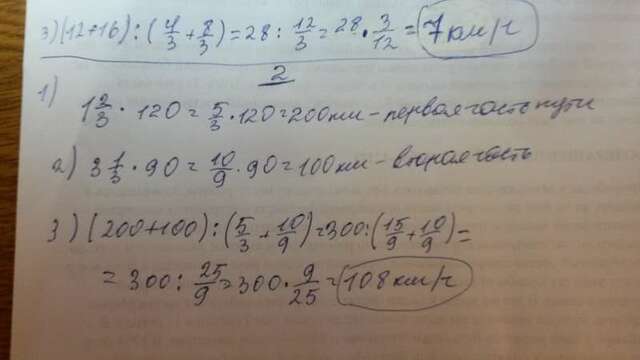 3) (12+16) : (4/3 + 8/3) = 28 : 12/3 = 28 · 3/12 = 7 км/ч
2
1) 1 2/3 · 120 = 5/3 · 120 = 200 км - первая часть пути
2) 3 1/3 · 90 = 10/9 · 90 = 100 км - вторая часть
3) (200+100) : (5/3 + 10/9) = 300 : (15/9 + 10/9) =
= 300 : 25/9 = 300 · 9/25 = 108 км/ч